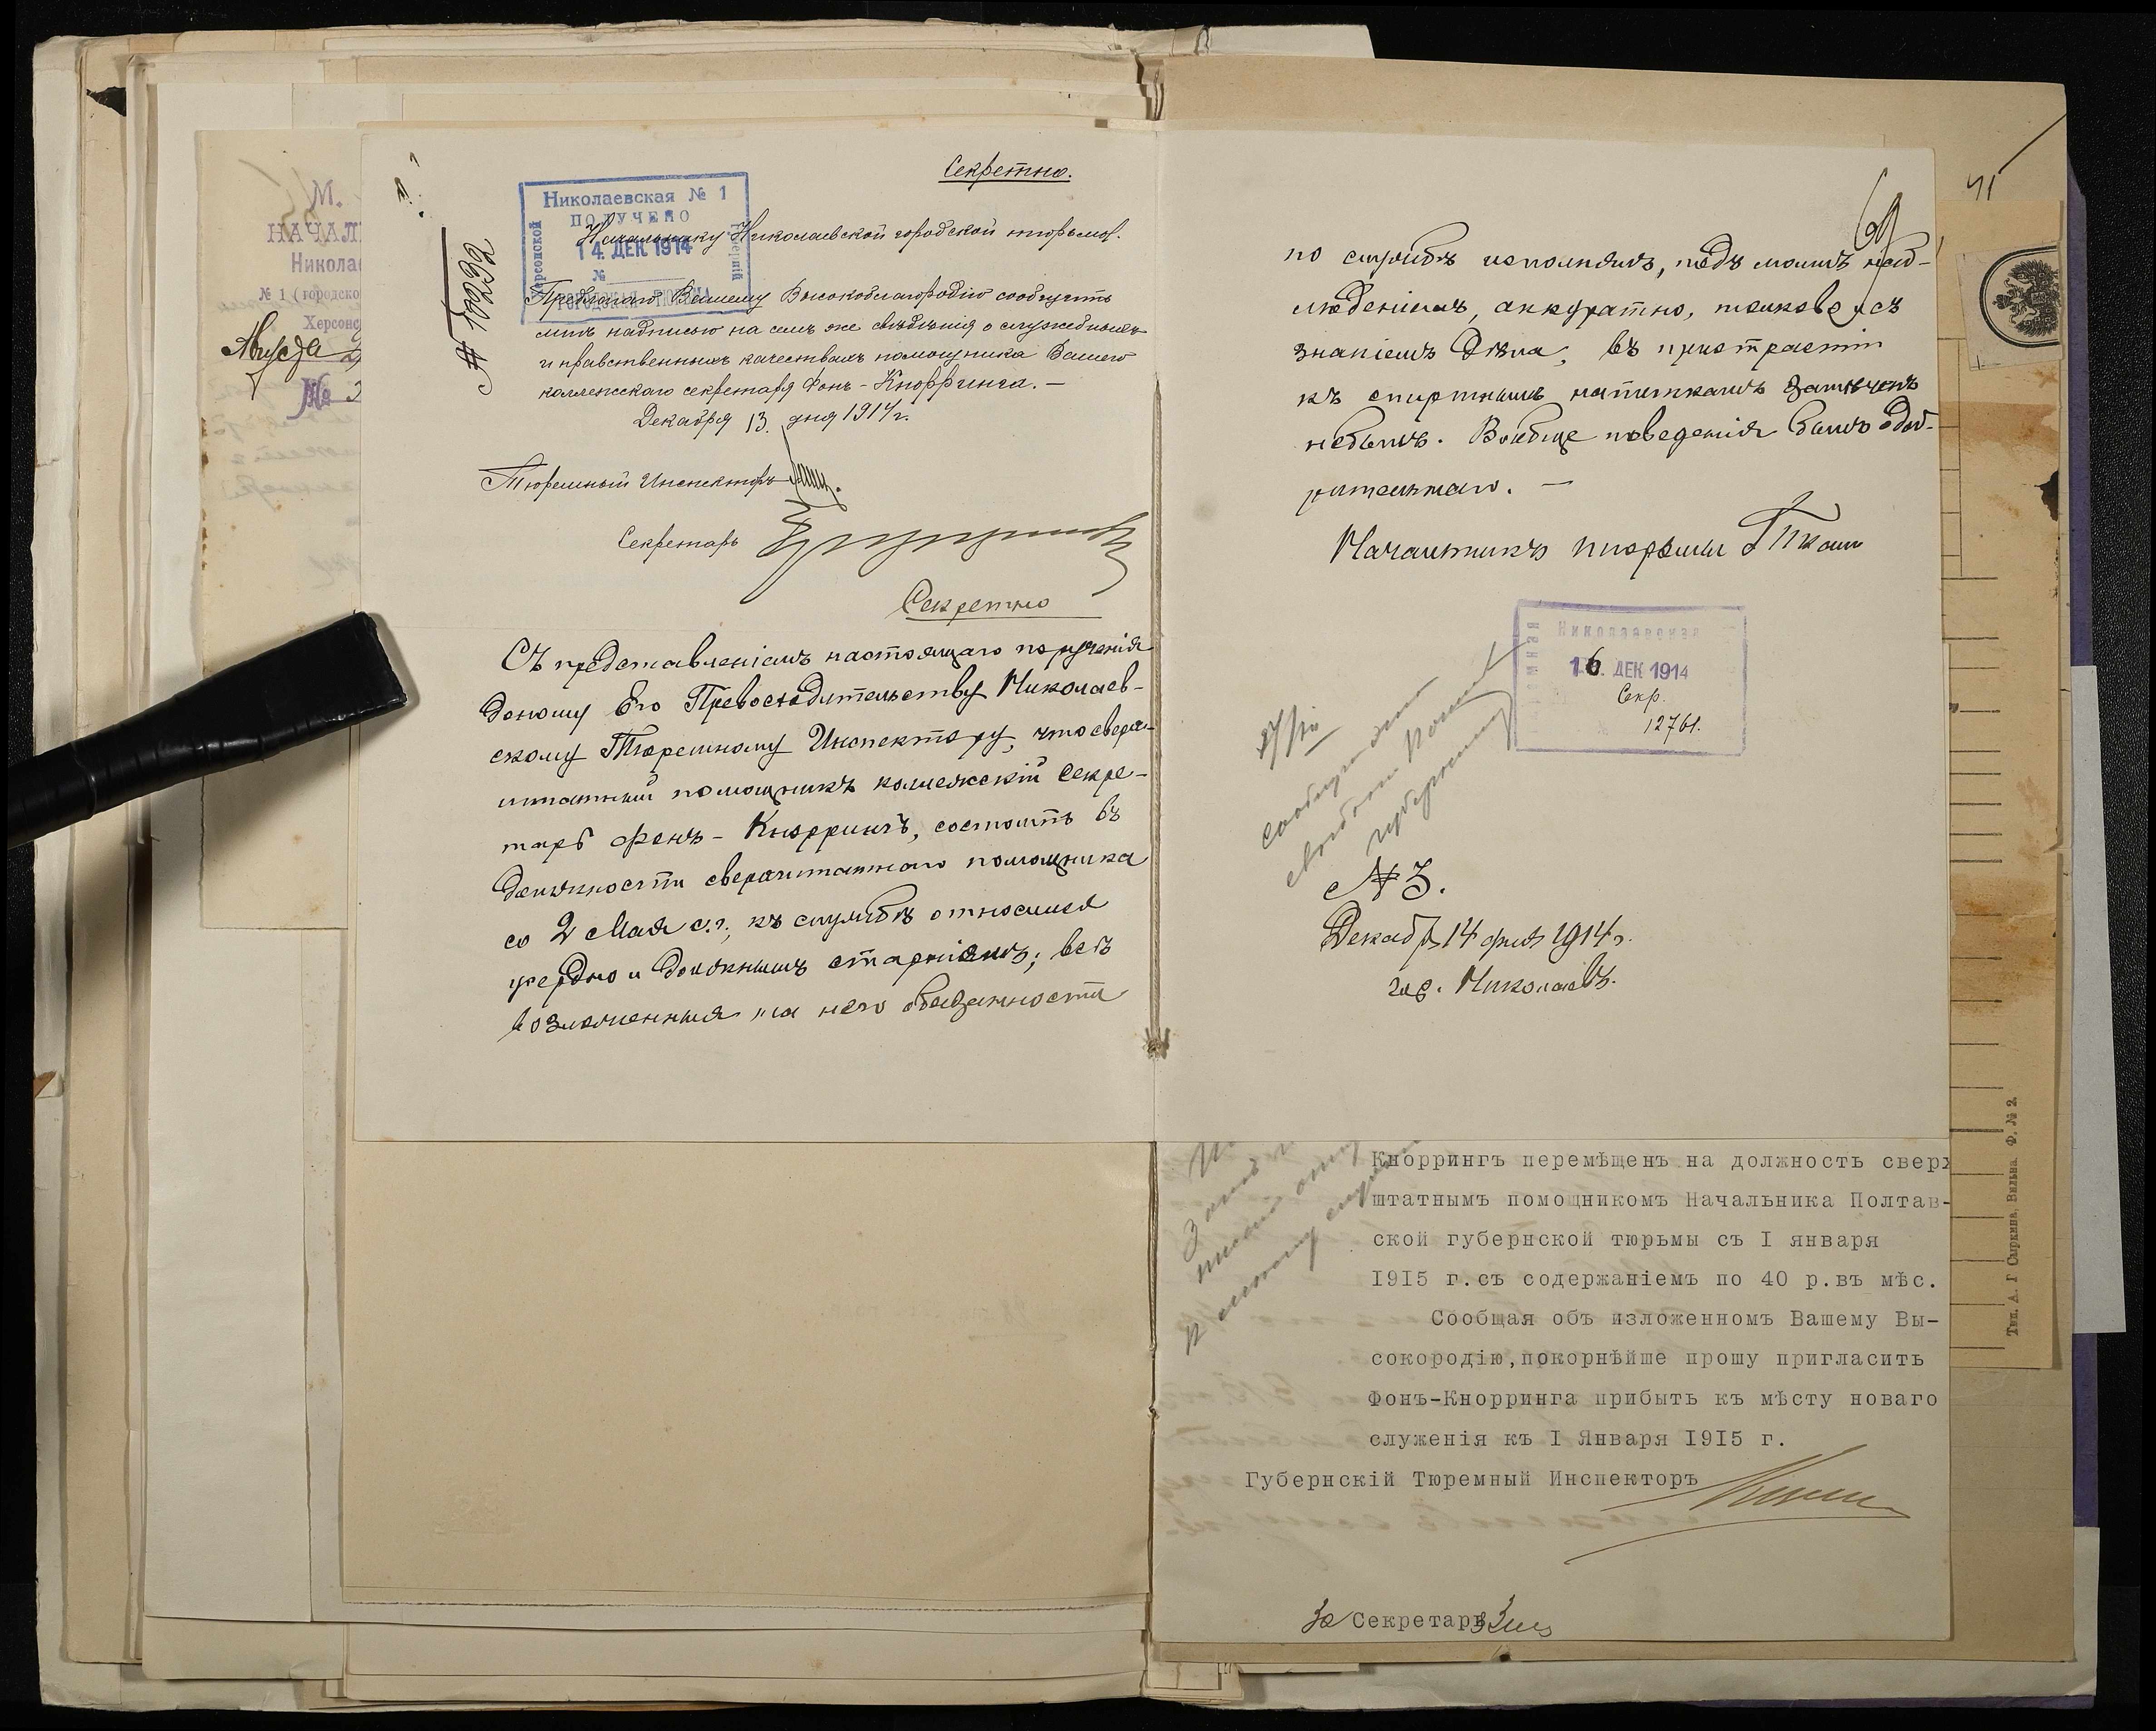 М.
НАЧАЛ
Никола
№ 1 (городско
Херсонс
Августа
№ 3
№ 10292
Секретно.
Николаевская № 1
ПОЛУЧЕНО
14 ДЕК 1914
№
ГОРОДСКАЯ ТЮРЬМА
Херсонской
губерніи
Начальнику Николаевской городской тюрьмы.
Предлагаю Вашему Высокоблагородію сообщить
мнѣ надписью на семъ же свѣдѣнія о служебныхъ
и нравственныхъ качествахъ помощника Вашего
коллежскаго секретаря Фонъ-Кнорринга. —
Декабря 13. дня 1914 г.
Тюремный Инспекторъ
Секретарь
Секретно
Съ представленіемъ настоящаго порученія
доношу Его Превосходительству Николаев-
скому Тюремному Инспектору, что сверх-
штатный помощникъ коллежскій секре-
тарь Фонъ-Кноррингъ, состоитъ въ
должности сверхштатнаго помощника
со 2 Мая с.г., къ службѣ относился
усердно и должнымъ стараніемъ; всѣ
возложенныя на него обязанности
69
по службѣ исполнялъ, подъ моимъ наб-
люденіемъ, аккуратно, толково и съ
знаніемъ дѣла; въ пристрастіи
къ спиртнымъ напиткамъ замѣченъ
небылъ. Вообще поведенія былъ одоб-
рительнаго. —
Начальникъ тюрьмы
Николаевская
16 ДЕК 1914
Секр.
12761.
17/XII
№ 3.
Декабря 14 дня 1914 г.
гор. Николаевъ.
Кноррингъ перемѣщенъ на должность сверх
штатнымъ помощникомъ Начальника Полтав-
ской губернской тюрьмы съ I января
1915 г.съ содержаніемъ по 40 р.въ мѣс.
Сообщая объ изложенномъ Вашему Вы-
сокородію,покорнѣйше прошу пригласить
Фонъ-Кнорринга прибыть къ мѣсту новаго
служенія къ I Января 1915 г.
Губернскій Тюремный Инспекторъ
За Секретаря
Тип. А. Г. Сыркина. Вильна. Ф. № 2.